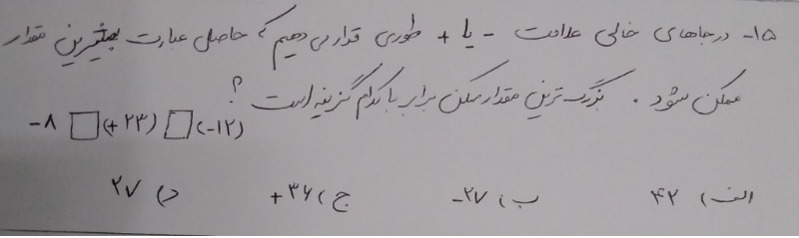 ۱۵- در جاهای خالی علامت - یا + طوری قرار می دهیم که حاصل عبارت بیشترین مقدار
ممکن شود . بزرگ ترین مقدار ممکن برابر با کدام گزینه است ؟
-۸ □ (+۲۳) □ (-۱۲)
الف) ۴۲ ب) -۲۷ ج) +۳۶ د) ۲۷